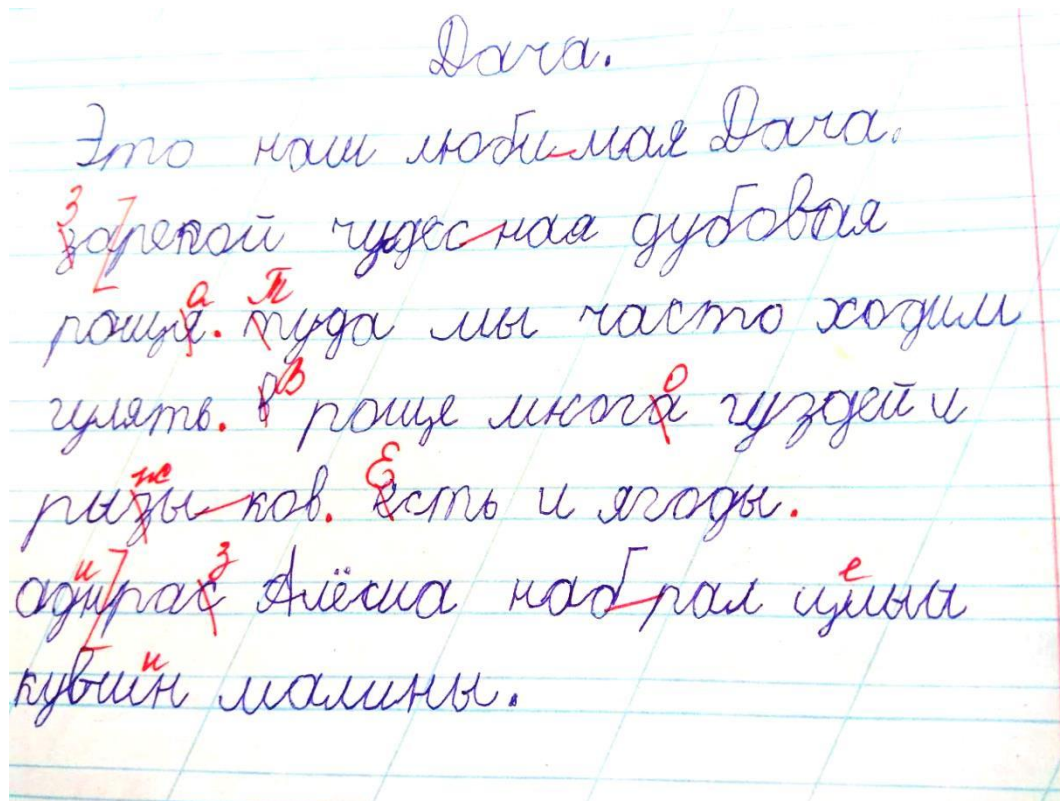 Дача.
Это наш люби мая Дача.
зарекой чудес ная дубовая
рощя. туда мы часто ходим
гулять. в роще многа гуздей и
рызы ков. есть и ягоды.
аднрас Алёша наб рал цлыы
кувшн малины.